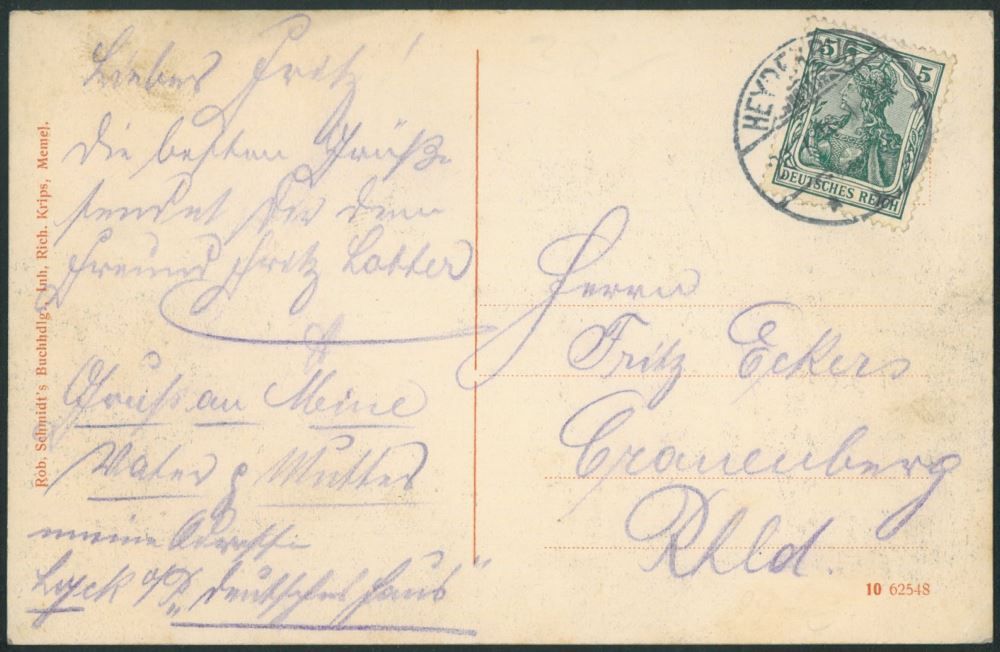 Liebes Fritz!
die besten Grüße
sendet Dir dein
Freund Fritz Lotter
Gruss an Meine
Vater & Mutter
meine Adresse
Lyck o/P „deutsches Haus“
Rob. Schmidt's Buchhdlg., Inh. Rich. Krips, Memel.
HEYDEKRUG
5 5
DEUTSCHES REICH
Herrn
Fritz Eckers
Cranenberg
Rhld.
10 62548